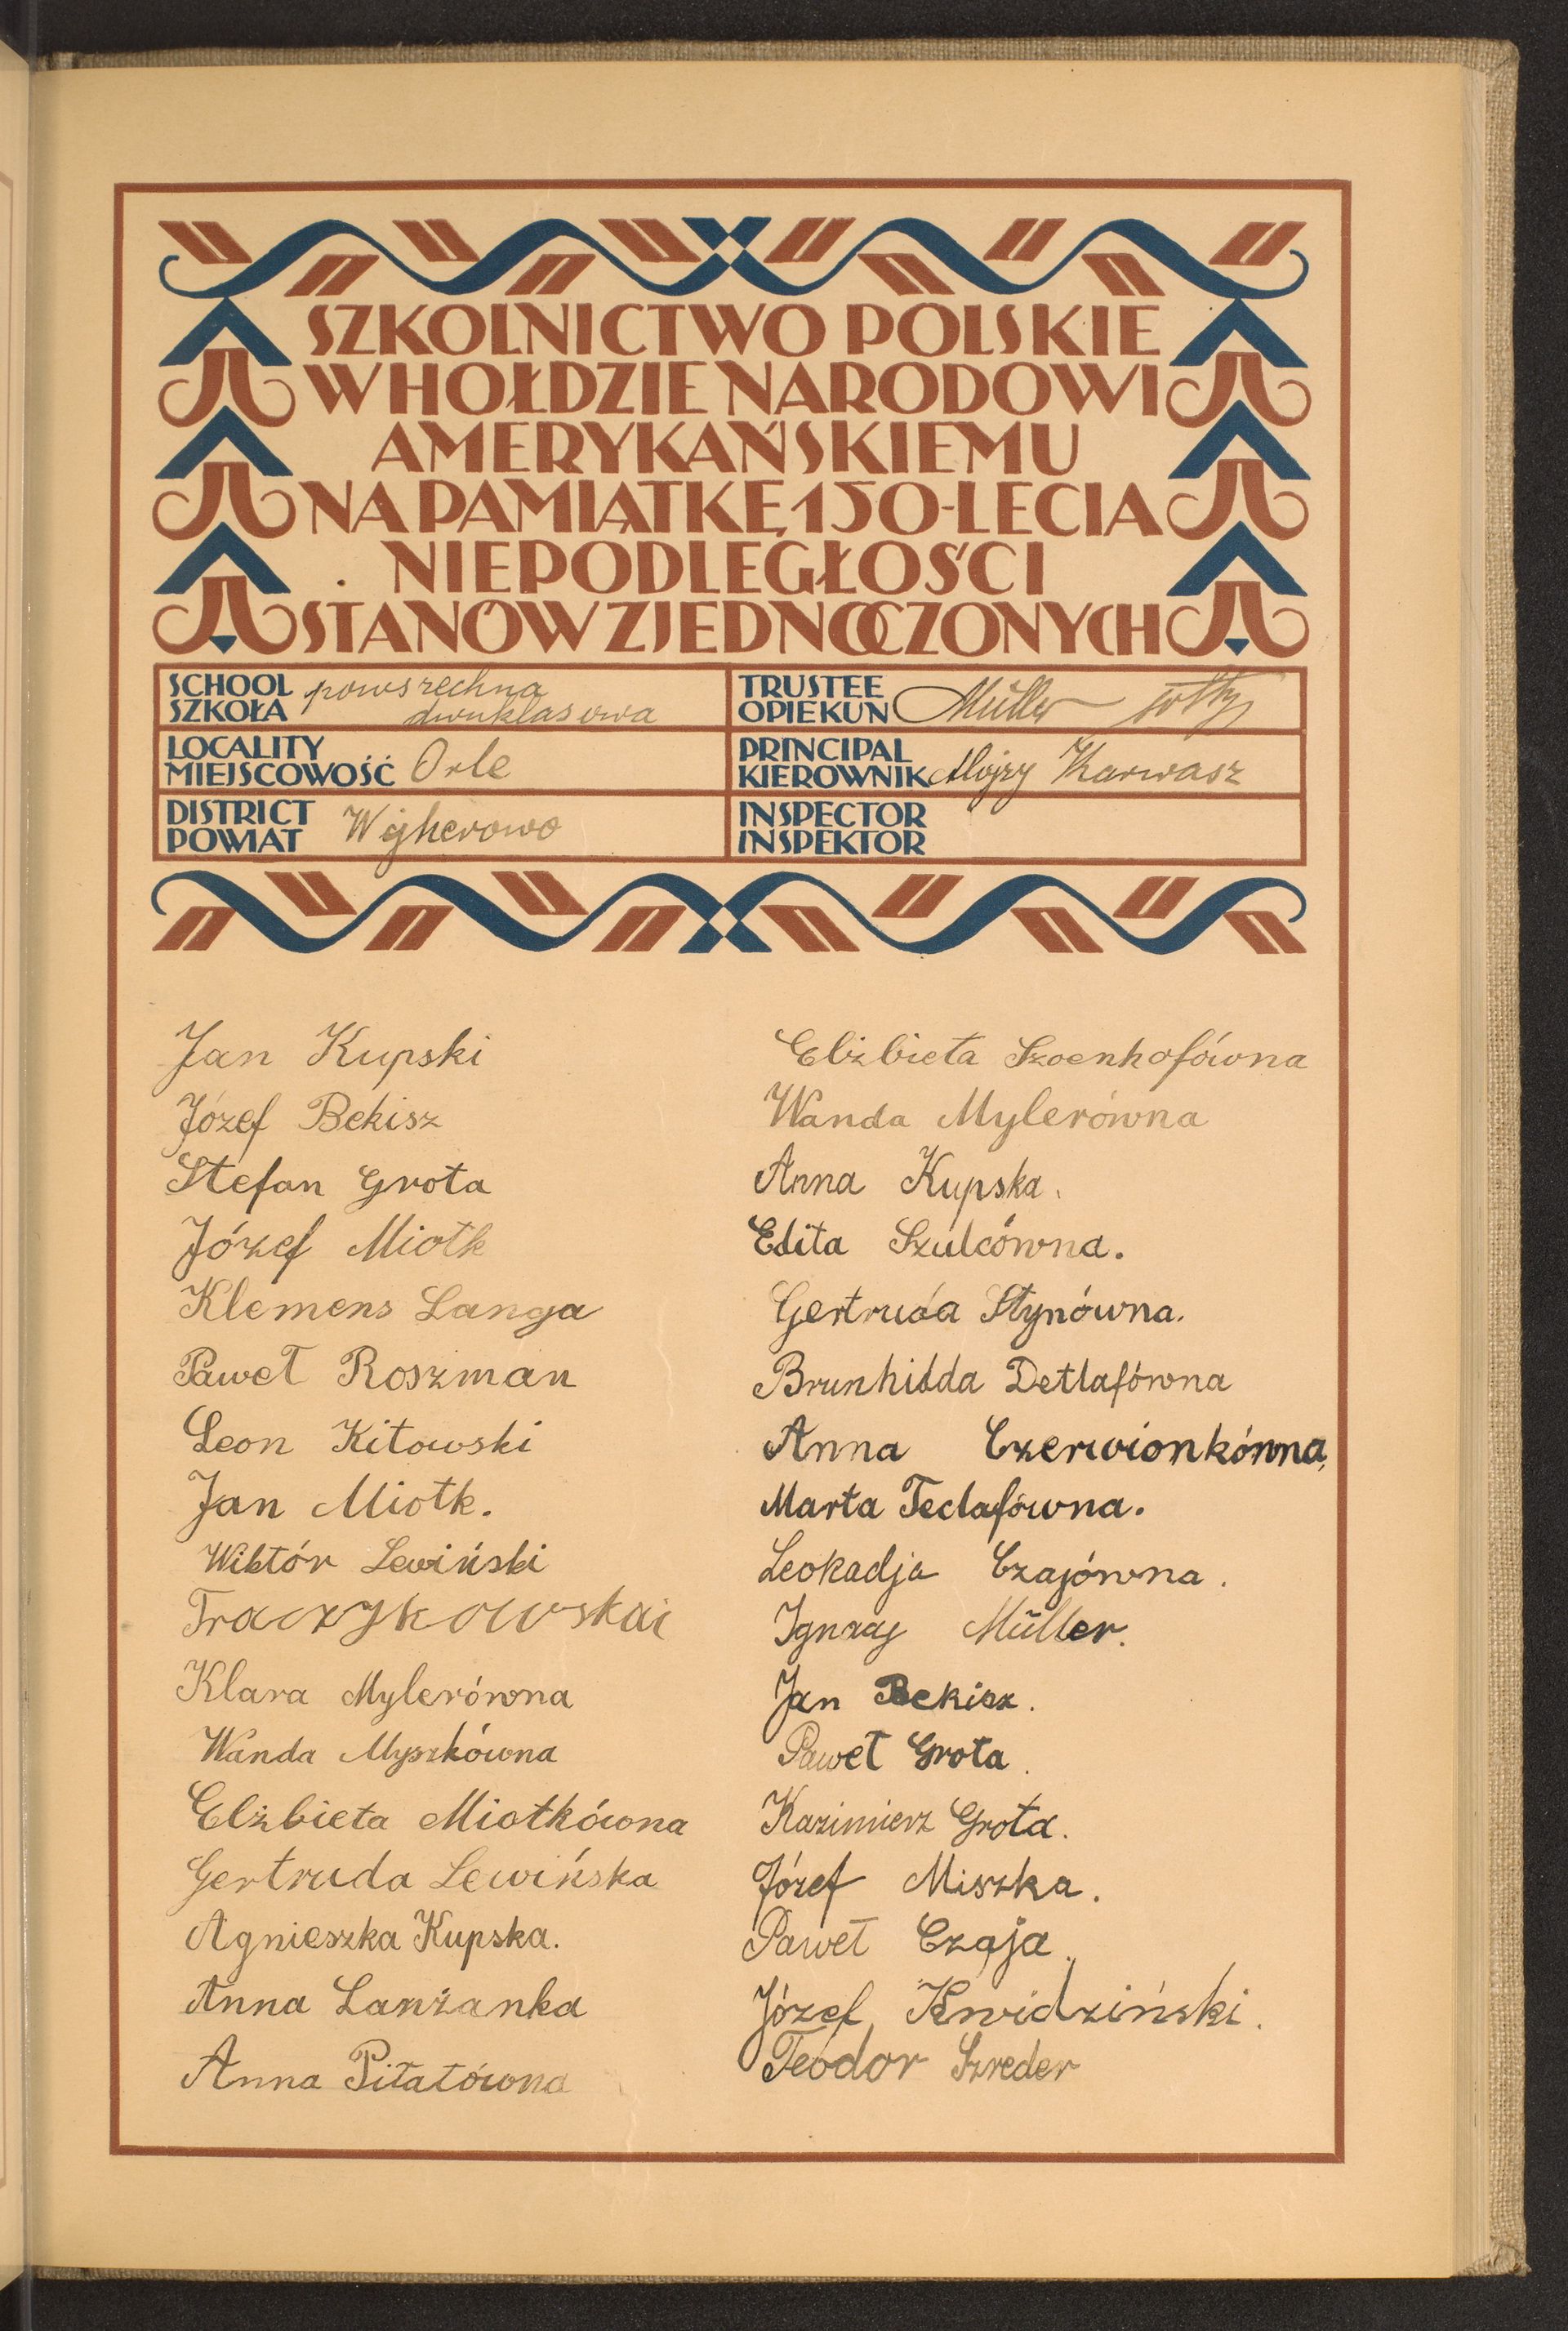 SZKOLNICTWO POLSKIE
W HOŁDZIE NARODOWI
AMERYKAŃSKIEMU
NA PAMIĄTKĘ 150-LECIA
NIEPODLEGŁOŚCI
STANÓW ZJEDNOCZONYCH
SCHOOL powszechna
SZKOŁA dwuklasowa
TRUSTEE
OPIEKUN Müller
LOCALITY
MIEJSCOWOŚĆ Orle
PRINCIPAL
KIEROWNIK Alojzy Karwasz
DISTRICT
POWIAT Wejherowo
INSPECTOR
INSPEKTOR
Jan Kupski
Józef Bekisz
Stefan Grota
Józef Miotk
Klemens Langa
Paweł Roszman
Leon Kitowski
Jan Miotk.
Wiktór Lewiński
Klara Mylerówna
Wanda Myszkówna
Elżbieta Miotkówna
Gertruda Lewińska
Agnieszka Kupska.
Anna Lanżanka
Anna Piłatówna
Elżbieta Szoenhofówna
Wanda Mylerówna
Anna Kupska.
Edita Szulcówna.
Gertruda Stynówna.
Brunhidda Detlafówna
Anna Czerwionkówna,
Marta Tedlafówna.
Leokadja Czajówna.
Ignacy Müller.
Jan Bekisz.
Paweł Grota.
Kazimierz Grota.
Józef Miszka.
Paweł Czaja.
Józef Kwidziński.
Teodor Szreder